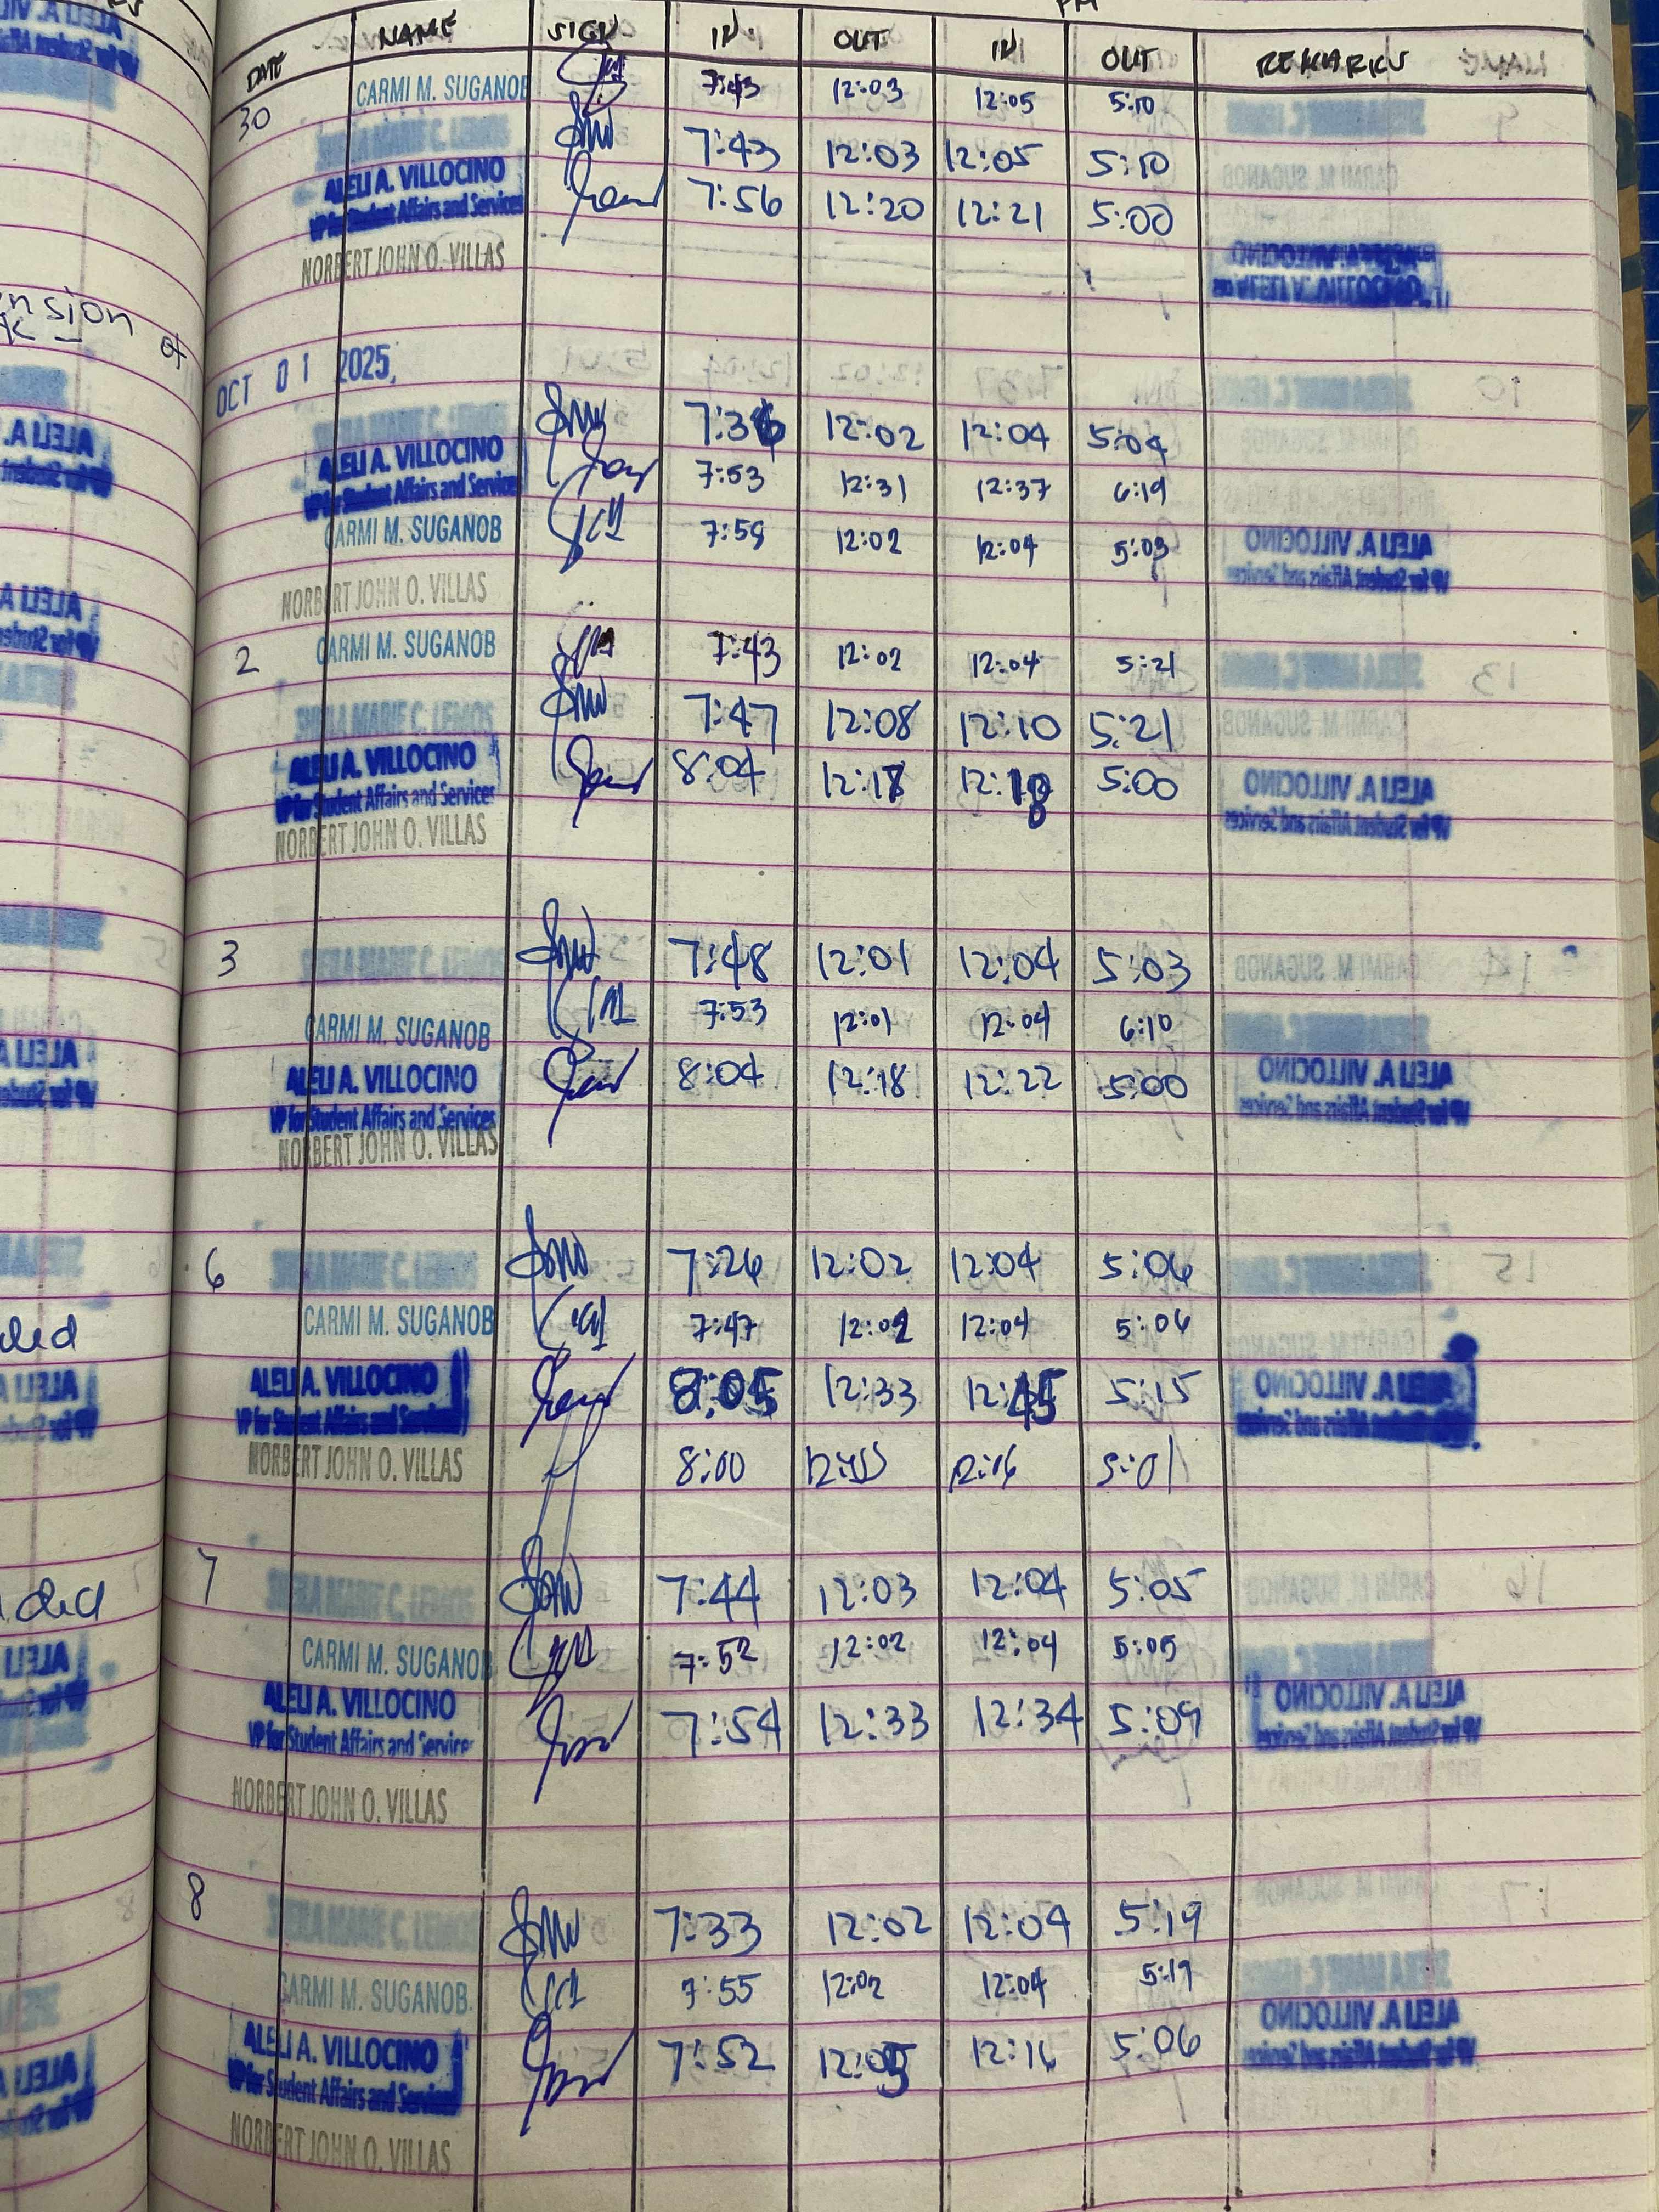 PM
DATE NAME SIGN IN OUT IN OUT REMARKS
30 CARMI M. SUGANOB 7:43 12:03 12:05 5:10
7:43 12:03 12:05 5:10
ALELI A. VILLOCINO 7:56 12:20 12:21 5:00
VP for Student Affairs and Services
NORBERT JOHN O. VILLAS
OCT 01 2025
7:36 12:02 12:04 5:04
ALELI A. VILLOCINO 7:53 12:31 12:37 6:19
VP for Student Affairs and Services
CARMI M. SUGANOB 7:59 12:02 12:04 5:03
NORBERT JOHN O. VILLAS
2 CARMI M. SUGANOB 7:43 12:02 12:04 5:21
SHEILA MARIE C. LEMOS 7:47 12:08 12:10 5:21
ALELI A. VILLOCINO 8:04 12:17 12:18 5:00
VP for Student Affairs and Services
NORBERT JOHN O. VILLAS
3 7:48 12:01 12:04 5:03
CARMI M. SUGANOB 7:53 12:01 12:04 6:10
ALELI A. VILLOCINO 8:04 12:18 12:22 5:00
VP for Student Affairs and Services
NORBERT JOHN O. VILLAS
6 7:26 12:02 12:04 5:06
CARMI M. SUGANOB 7:47 12:02 12:04 5:06
ALELI A. VILLOCINO 8:05 12:33 12:45 5:15
VP for Student Affairs and Services
NORBERT JOHN O. VILLAS 8:00 12:16 5:01
7 7:44 12:03 12:04 5:05
CARMI M. SUGANOB 7:52 12:02 12:04 5:05
ALELI A. VILLOCINO 7:54 12:33 12:34 5:09
VP for Student Affairs and Service
NORBERT JOHN O. VILLAS
8 7:33 12:02 12:04 5:19
CARMI M. SUGANOB 7:55 12:02 12:04 5:19
ALELI A. VILLOCINO 7:52 12:05 12:16 5:06
VP for Student Affairs and Services
NORBERT JOHN O. VILLAS